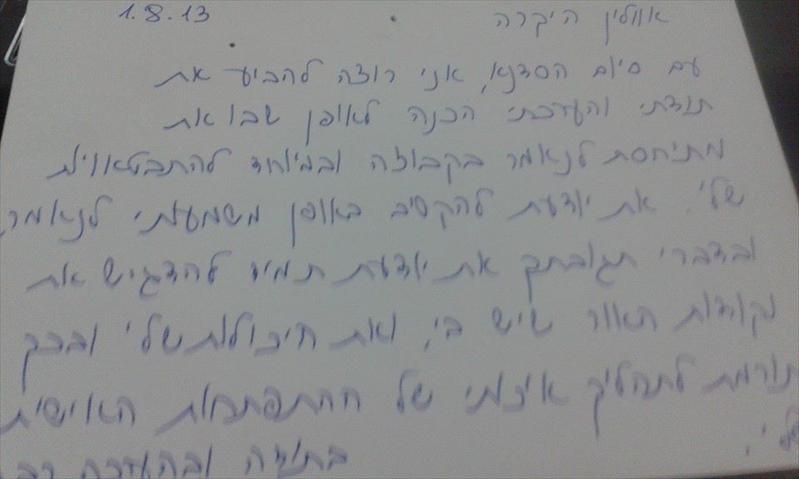 1.8.13
אוולין היקרה
עם סיום הסדנא, אני רוצה להביע את
תודתי והערכתי הכנה לאופן שבו את
מתיחסת לנאמר בקבוצה ובמיוחד להתבטאויות
שלי. את יודעת להקשיב באופן משמעותי לנאמר,
ובדברי תגובתך את יודעת תמיד להדגיש את
נקודות האור שיש בי, ואת היכולות שלי ובכך
תורמת לתהליך איכותי של ההתפתחות האישית
שלי.
בתודה ובהערכה רבה